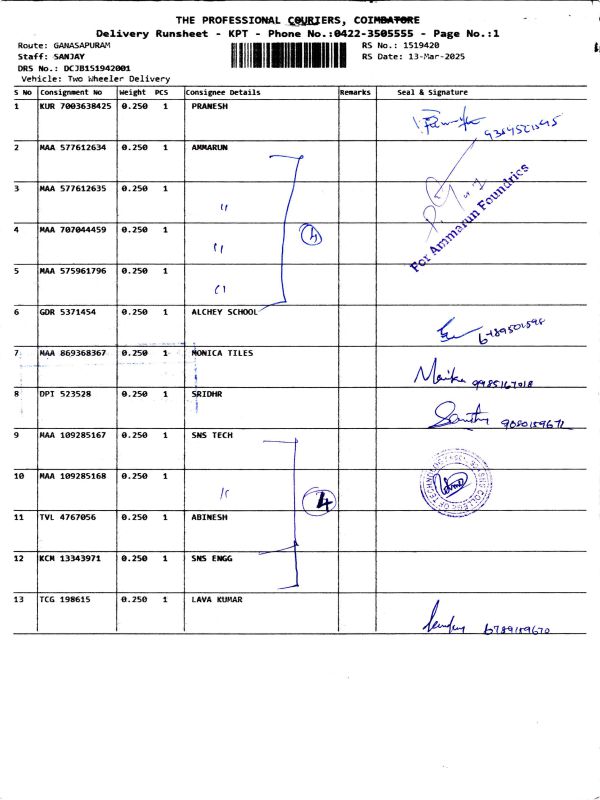 THE PROFESSIONAL COURIERS, COIMBATORE
Delivery Runsheet - KPT - Phone No.:0422-3505555 - Page No.:1
Route: GANASAPURAM RS No.: 1519420
Staff: SANJAY RS Date: 13-Mar-2025
DRS No.: DCJB151942001
Vehicle: Two Wheeler Delivery
S No Consignment No Weight PCS Consignee Details Remarks Seal & Signature
1 KUR 7003638425 0.250 1 PRANESH
2 MAA 577612634 0.250 1 AMMARUN
3 MAA 577612635 0.250 1 "
4 MAA 707044459 0.250 1 " 4
5 MAA 575961796 0.250 1 "
For Ammarun Foundries
6 GDR 5371454 0.250 1 ALCHEY SCHOOL 6789501598
7 MAA 869368367 0.250 1 MONICA TILES 9985167018
8 DPI 523528 0.250 1 SRIDHR 9080159671
9 MAA 109285167 0.250 1 SNS TECH
10 MAA 109285168 0.250 1 " 4
11 TVL 4767056 0.250 1 ABINESH
12 KCM 13343971 0.250 1 SNS ENGG
13 TCG 198615 0.250 1 LAVA KUMAR 6789159670